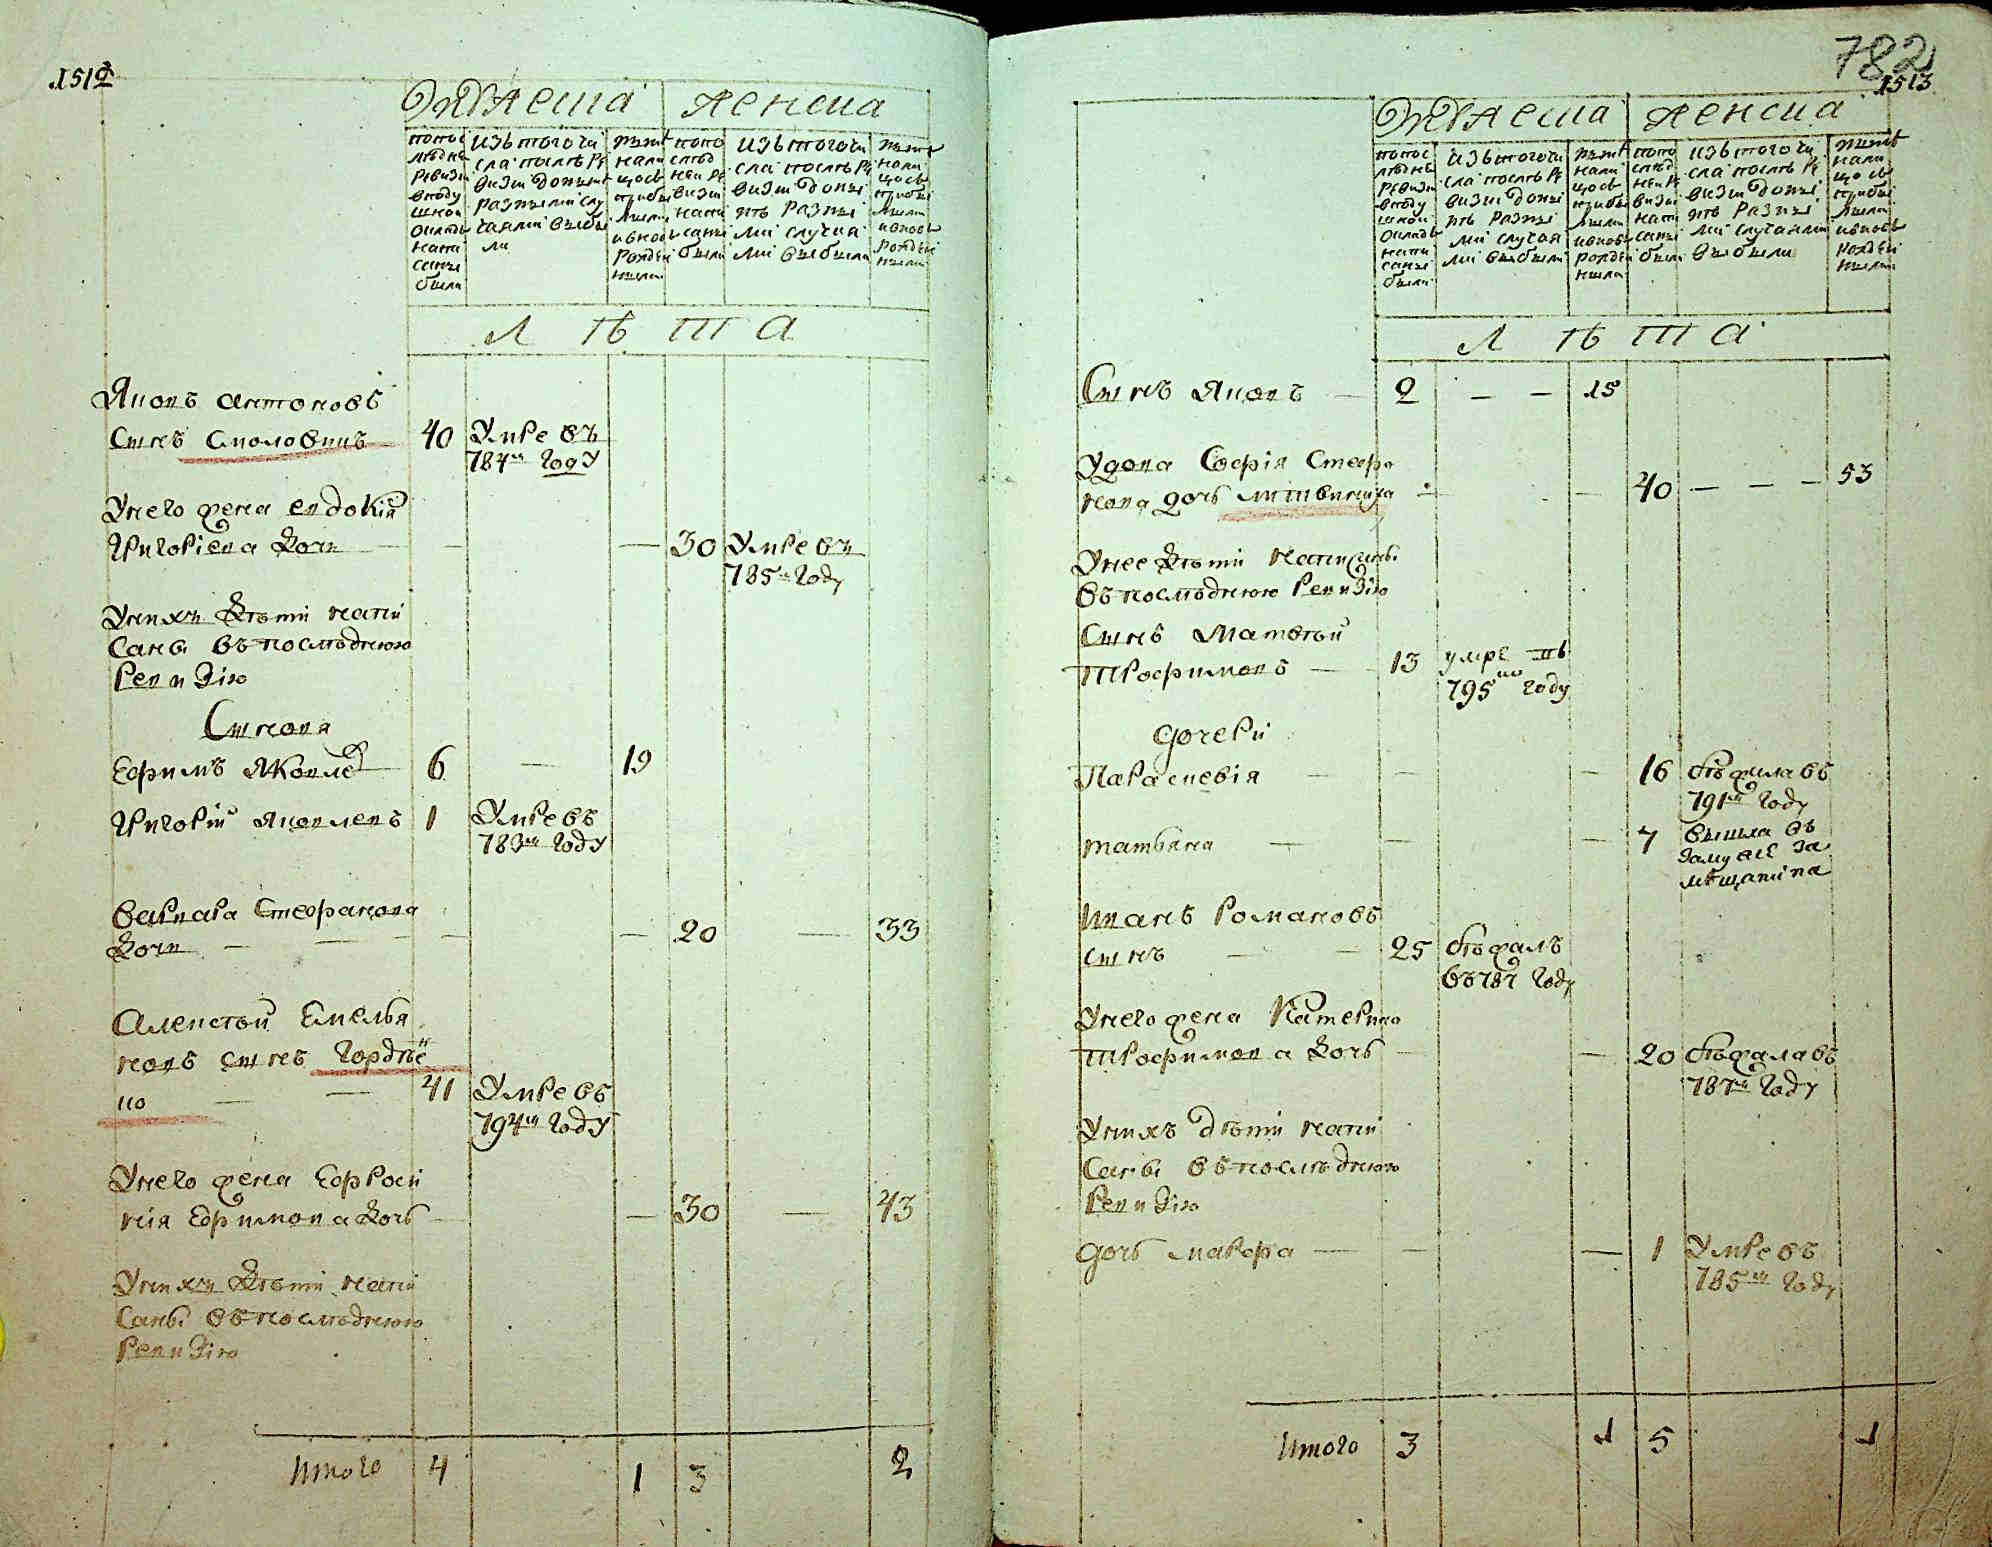 1512
Мужеска женска
попос
лѣдне
ревизи
вподу
шном
окладѣ
напи
саны
были
изъ того чи
сла послѣ ре
визіи донынѣ
разными слу
чаями выбы
ли
нынѣ
нали
цо съ
прибы
лыми
и вновь
рожден
ными
попо
след
ней ре
визіи
напи
саны
были
изъ того чи
сла послѣ ре
визіи доны
нѣ разны
ми случая
ми выбыли
нынѣ
нали
цо съ
прибы
лыми
и вновь
рожден
ными
Л ѣ т а
Яковъ антоновъ
Сынъ Смоловикъ 40 Умре въ
784м году
Унего жена евдокія
Григоріева дочь — — 30 Умре въ
785м году
Унихъ дѣти напи
саны въ последнюю
ревизію
Сыновя
Ефимъ Яковле 6 — 19
Григорій яковлевъ 1 Умре въ
783м году
Варвара Стефанова
дочь — — — — — 20 — 33
Алексѣй Емелья
новъ сынъ Гордѣе
нко — — 41 Умре въ
794м году
Унего жена Ефроси
нія Ефимова дочь — — 30 — 43
Унихъ дѣти напи
саны въ последнюю
ревизію
Итого 4 1 3 2
782
1513
Мужеска женска
попос
лѣдне
ревизи
вподу
шном
окладѣ
напи
саны
были
изъ того чи
сла послѣ ре
визіи доны
нѣ разны
ми случая
ми выбыли
нынѣ
нали
цо съ
прибы
лыми
и вновь
рожден
ными
попо
слѣд
ней ре
визіи
напи
саны
были
изъ того чи
сла послѣ ре
визіи доны
нѣ разны
ми случаями
выбыли
нынѣ
нали
цо съ
прибы
лыми
и вновь
рожден
ными
Л ѣ т а
Сынъ Яковъ — 2 — — 15
Удова Софія Стефа
нова дочь литвинка — — 40 — — — 53
Унее дѣти написаны
въ последнюю ревизію
Сынъ Матвѣй
Трофимовъ — 13 умре въ
795мъ году
дочери
Параскевія — — — 16 бѣжила въ
791м году
татьяна — — — 7 вышла въ
замуже за
мѣщанина
Иванъ Романовъ
сынъ — — 25 бѣжалъ
въ 787 году
Унего жена Катерина
Трофимова дочь — — 20 бѣжала въ
787м году
Унихъ дѣти напи
саны въ последнюю
ревизію
дочь марфа — — — 1 Умре въ
785м году
Итого 3 1 5 1